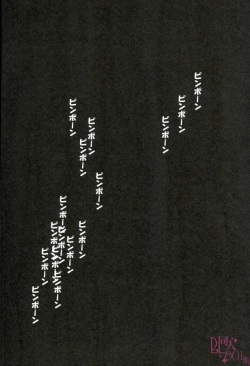 ピンポーン
ピンポーン
ピンポーン
ピンポーン
ピンポーン
ピンポーン
ピンポーン
ピンポーン
ピンポーン
ピンポーン
ピンポーン
ピンポーン
ピンポーン
ピンポーン
ピンポーン